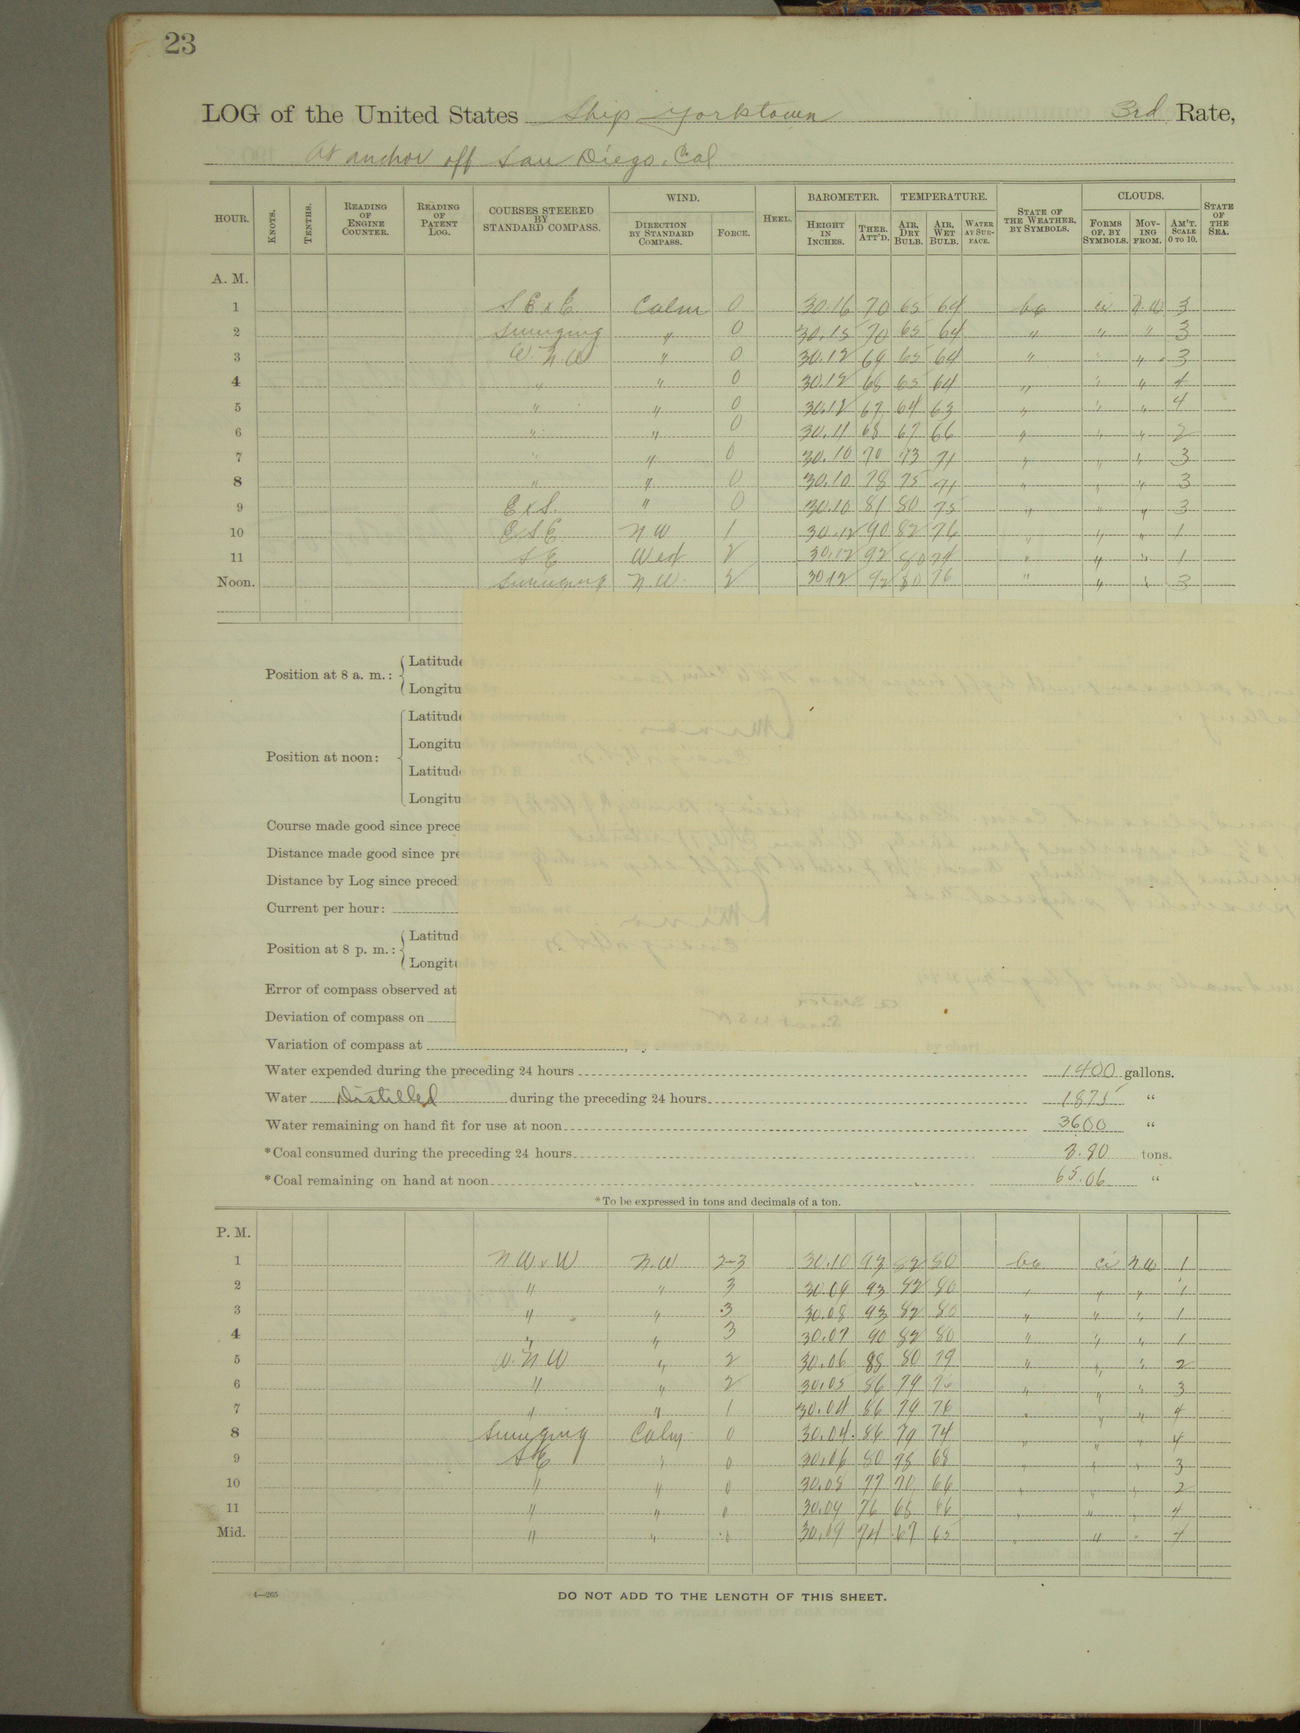 23
LOG of the United States Ship Yorktown 3rd Rate,
At anchor off San Diego, Cal
HOUR. KNOTS. TENTHS. READING OF ENGINE COUNTER. READING OF PATENT LOG. COURSES STEERED BY STANDARD COMPASS. WIND. DIRECTION BY STANDARD COMPASS. FORCE. HEEL. BAROMETER. HEIGHT IN INCHES. THER. ATT'D. TEMPERATURE. AIR, DRY BULB. AIR, WET BULB. WATER AT SURFACE. STATE OF THE WEATHER, BY SYMBOLS. CLOUDS. FORMS OF, BY SYMBOLS. MOVING FROM. AM'T. SCALE 0 TO 10. STATE OF THE SEA.
A. M.
1 S E x E Calm 0 30.16 70 65 64 bc ci N.W 3
2 Swinging " 0 30.15 70 65 64 " " " 3
3 W N W " 0 30.12 69 65 64 " " " 3
4 " " 0 30.12 68 65 64 " " " 4
5 " " 0 30.12 67 64 63 " " " 4
6 " " 0 30.11 68 67 66 " " " 2
7 " " 0 30.10 70 73 71 " " " 3
8 " " 0 30.10 78 75 71 " " " 3
9 E x S. " 0 30.10 81 80 75 " " " 3
10 E S E N W 1 30.12 90 82 76 " " " 1
11 S E West 2 30.12 92 80 74 " " " 1
Noon. Swinging N.W. 2 30 12 92 80 76 " " " 3
Position at 8 a. m.: Latitude
Longitu
Position at noon: Latitud
Longitu
Latitud
Longitu
Course made good since prece
Distance made good since pre
Distance by Log since preced
Current per hour:
Position at 8 p. m.: Latitud
Longit
Error of compass observed at
Deviation of compass on
Variation of compass at
Water expended during the preceding 24 hours 1400 gallons.
Water Distilled during the preceding 24 hours 1875 "
Water remaining on hand fit for use at noon 3600 "
*Coal consumed during the preceding 24 hours 3.80 tons.
*Coal remaining on hand at noon 65.06 "
*To be expressed in tons and decimals of a ton.
P. M.
1 N W x W N.W 2-3 30.10 93 82 80 bc ci N W 1
2 " " 3 30.09 93 82 80 " " " 1
3 " " 3 30.08 93 82 80 " " " 1
4 " " 3 30.07 90 82 80 " " " 1
5 W. N W " 2 30.06 88 80 79 " " " 2
6 " " 2 30.05 86 79 76 " " " 3
7 " " 1 30.04 86 79 76 " " " 4
8 Swinging Calm 0 30.04 86 79 74 " " " 4
9 S E " 0 30.06 80 78 68 " " " 3
10 " " 0 30.08 77 70 66 " " " 2
11 " " 0 30.09 76 68 66 " " " 4
Mid. " " 0 30.09 74 67 65 " " " 4
4—265
DO NOT ADD TO THE LENGTH OF THIS SHEET.